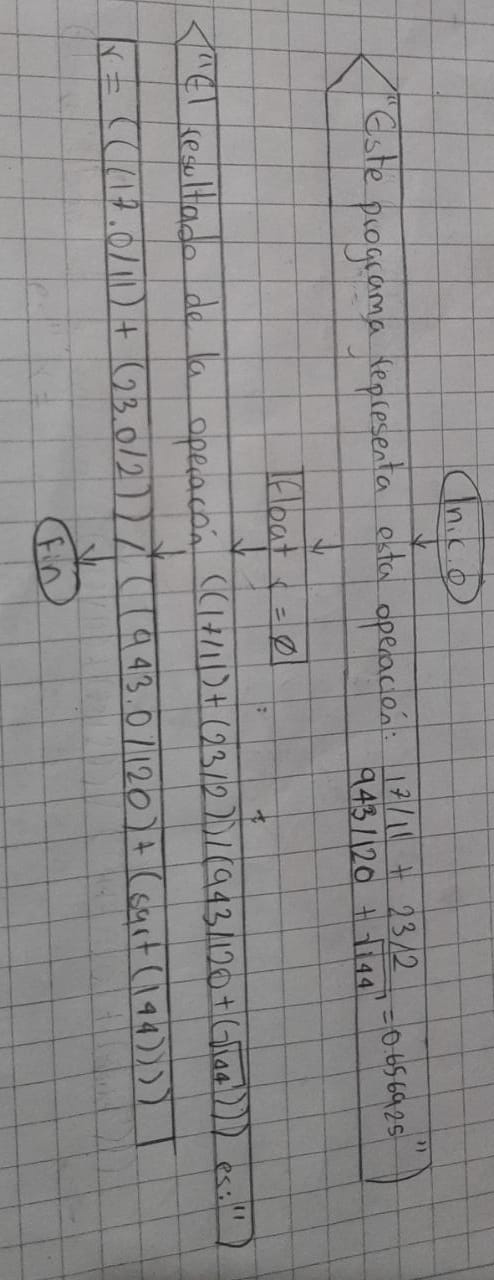 Inicio
"Este programa representa esta operación: 17/11 + 23/2
943/120 + √144 = 0.656925"
float r = 0
"El resultado de la operacón ((17/11)+(23/2))/(943/120+(√144))) es:"
r = (((17.0/11)+(23.0/2))/((943.0/120)+(sqrt(144))))
Fin